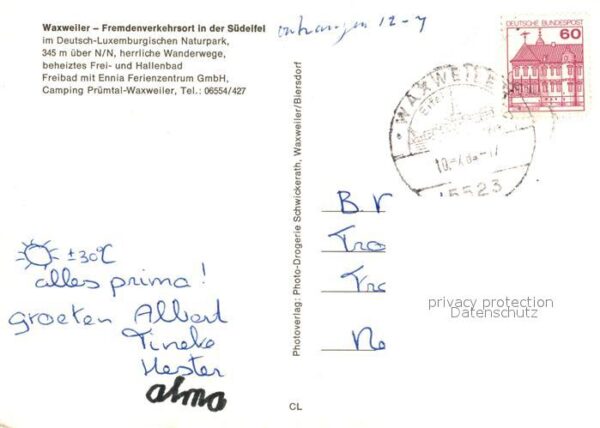 Waxweiler – Fremdenverkehrsort in der Südeifel
im Deutsch-Luxemburgischen Naturpark,
345 m über N/N, herrliche Wanderwege,
beheiztes Frei- und Hallenbad
Freibad mit Ennia Ferienzentrum GmbH,
Camping Prümtal-Waxweiler, Tel.: 06554/427
ontvangen 12-7
DEUTSCHE BUNDESPOST
60
WAXWEILE
Eifel
5523
Photoverlag: Photo-Drogerie Schwickerath, Waxweiler/Biersdorf
B. V
Tro
Tro
Ne
privacy protection
Datenschutz
±30°C
alles prima!
groeten Albert
Tineke
Hester
alma
CL